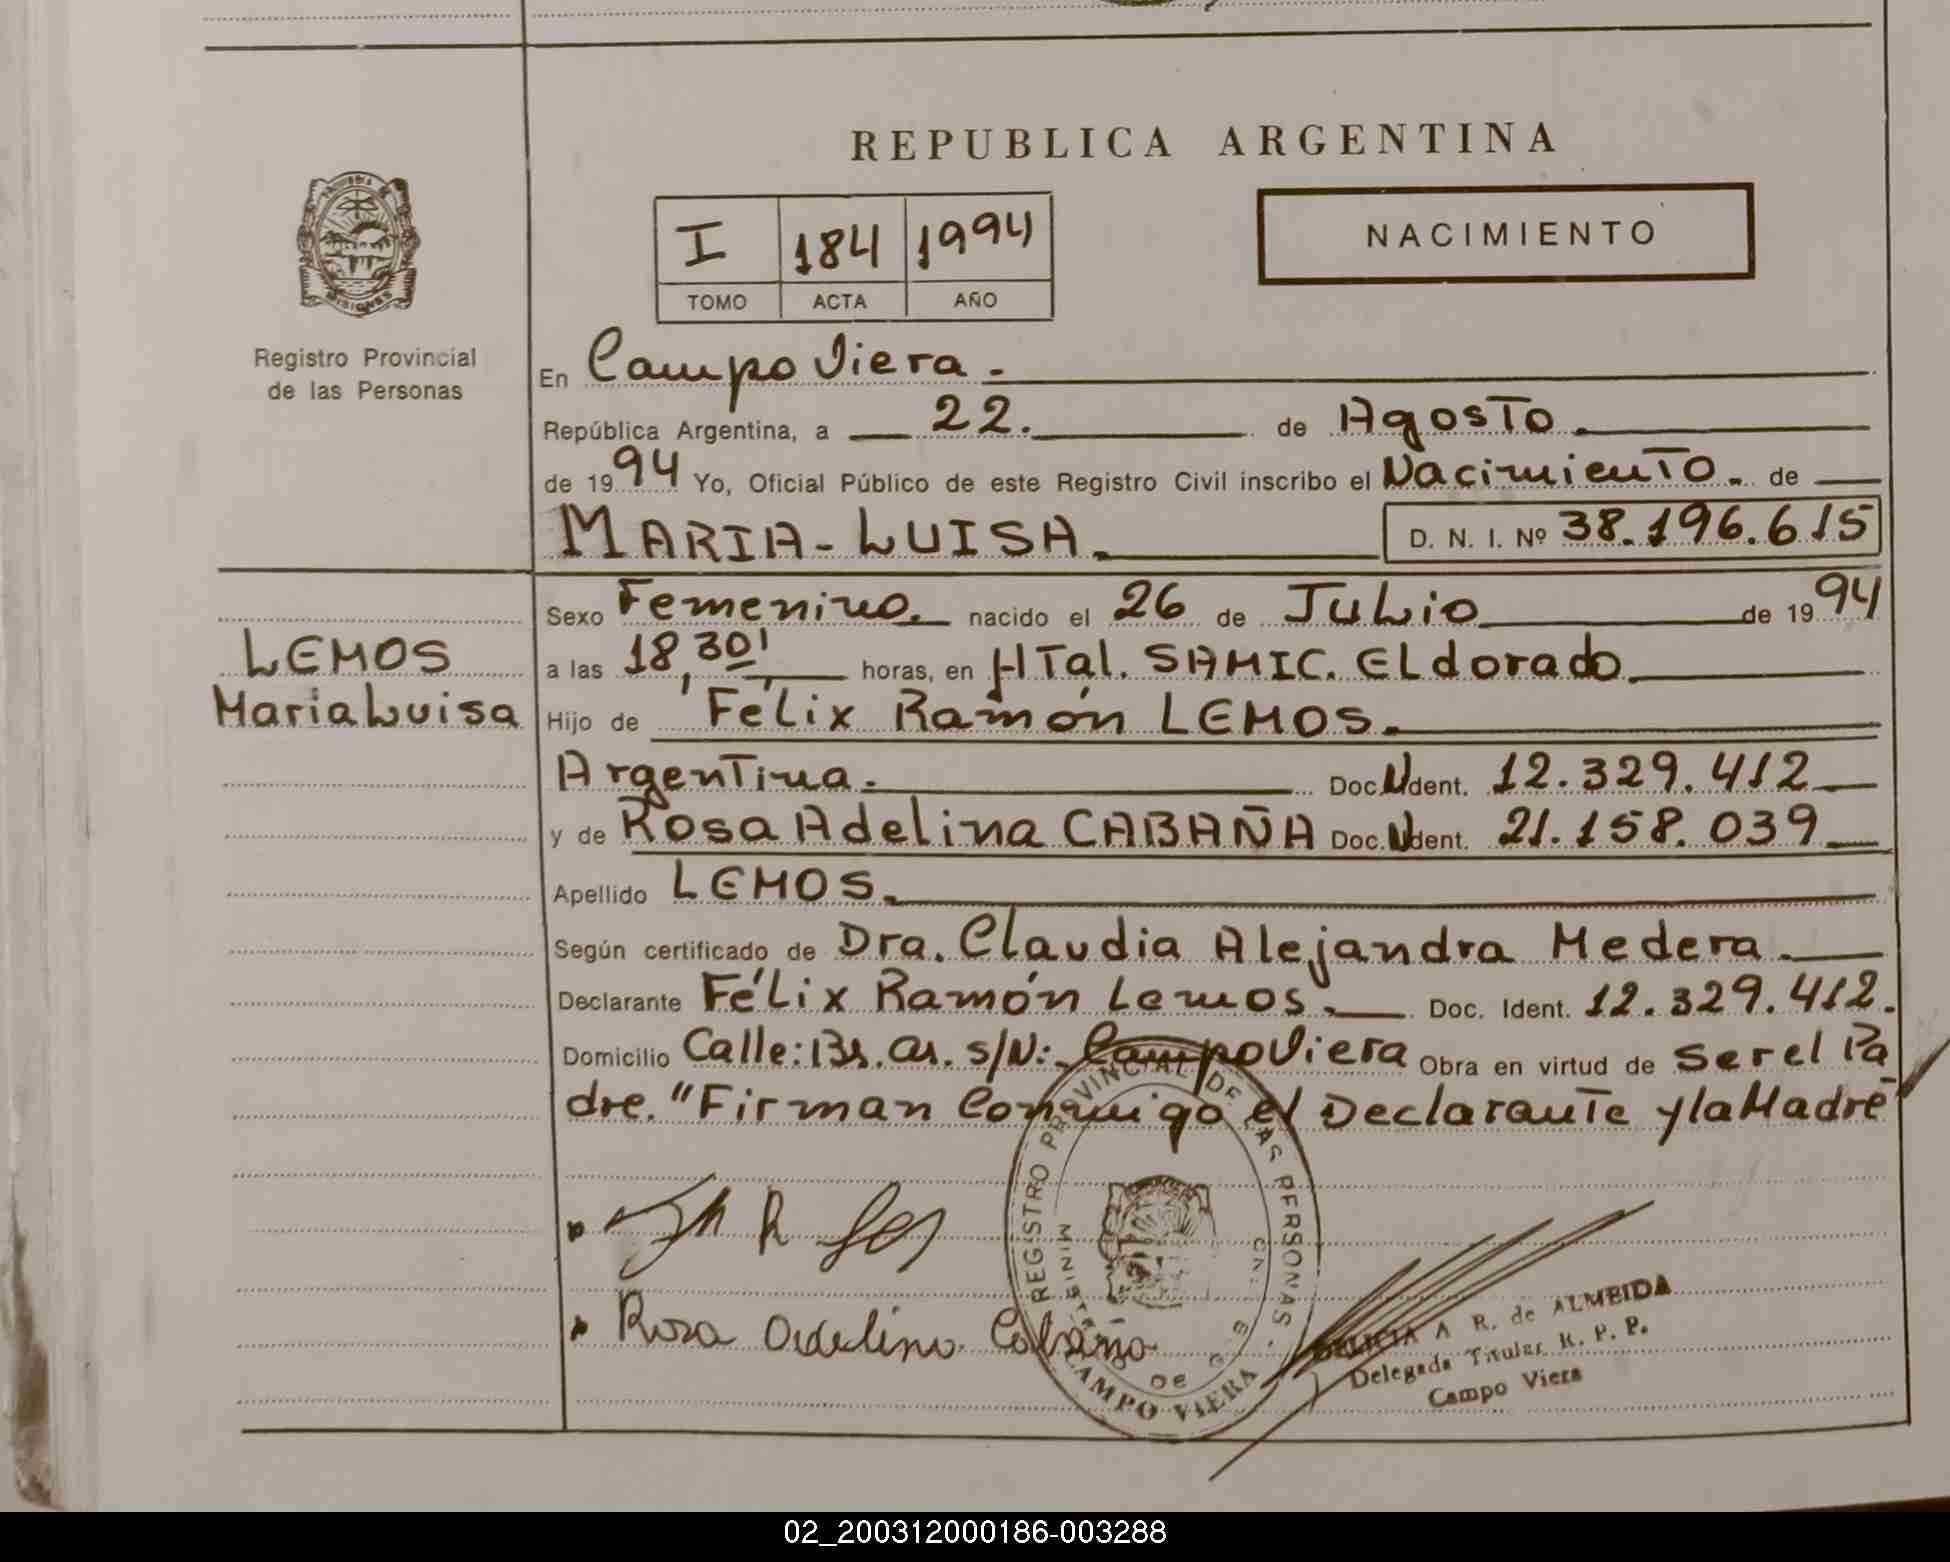 REPUBLICA ARGENTINA
I 184 1994
TOMO ACTA AÑO
NACIMIENTO
MISIONES
Registro Provincial
de las Personas
En Campo Viera.
República Argentina, a 22. de Agosto
de 1994 Yo, Oficial Público de este Registro Civil inscribo el Nacimiento. de
MARIA-LUISA. D. N. I. Nº 38.196.615
LEMOS
Maria Luisa
Sexo Femenino. nacido el 26 de Julio de 1994
a las 18,30' horas, en HTal. SAMIC. ELdorado.
Hijo de Félix Ramón LEMOS.
Argentina. Doc. Ident. 12.329.412
y de Rosa Adelina CABAÑA Doc. Ident. 21.158.039
Apellido LEMOS.
Según certificado de Dra. Claudia Alejandra Medera.
Declarante Félix Ramón Lemos. Doc. Ident. 12.329.412.
Domicilio Calle: Bs. As. s/N: Campo Viera Obra en virtud de ser el Pa
dre. "Firman Conmigo el Declarante y la Madre"
REGISTRO PROVINCIAL DE LAS PERSONAS
CAMPO VIERA
Rosa Adelina Cabaña
DELICIA A R. de ALMEIDA
Delegada Titular R. P. P.
Campo Viera
02_200312000186-003288